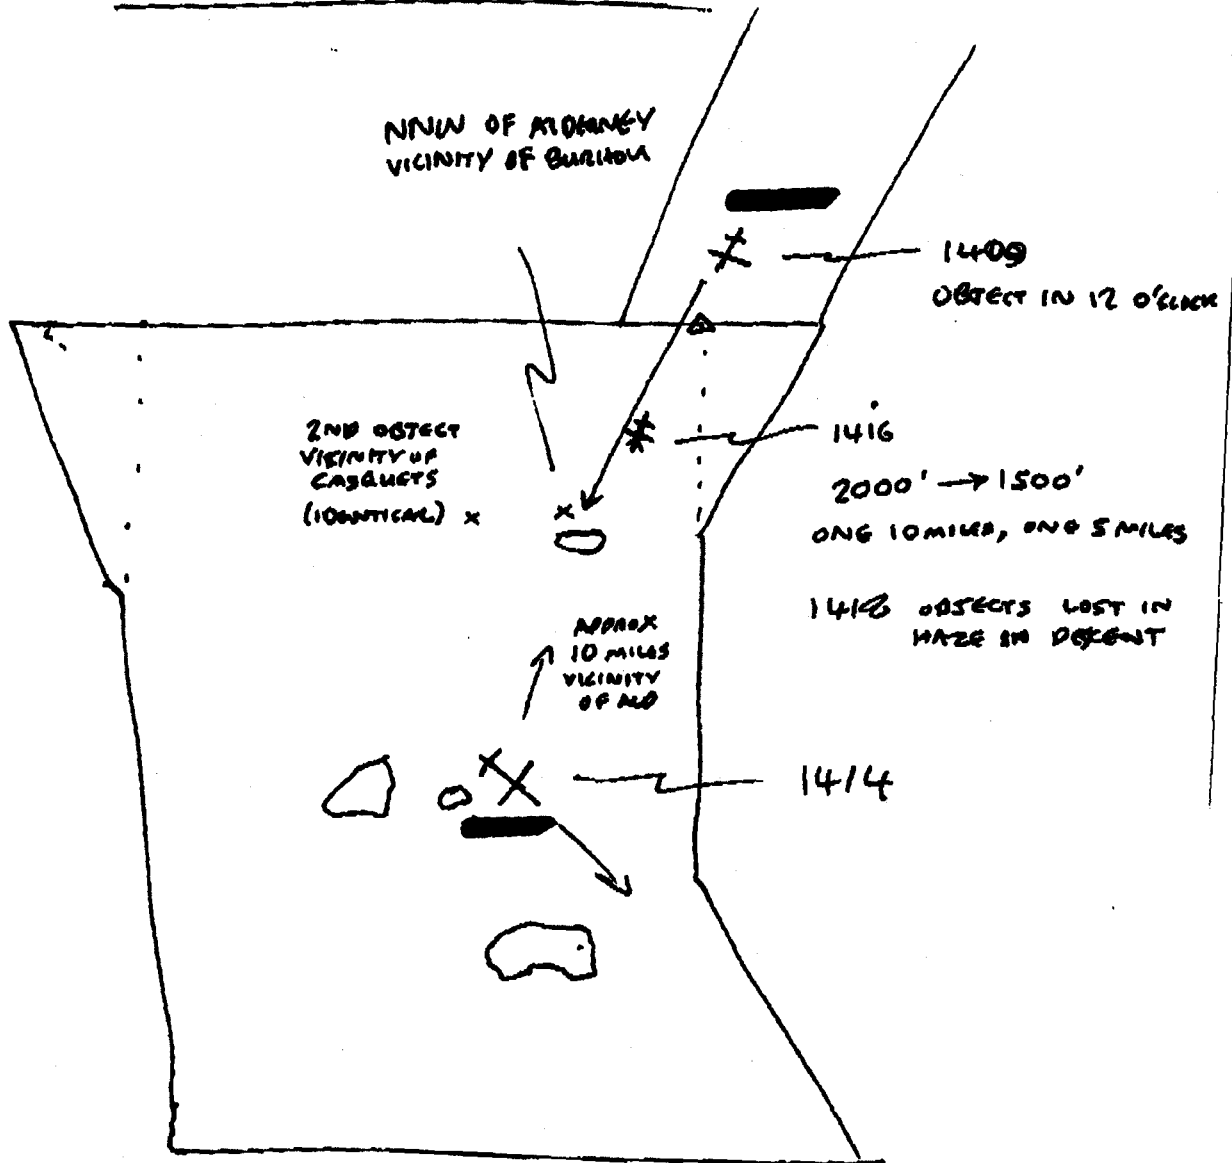 NNW OF ALDERNEY
VICINITY OF BURHOU
1409
OBJECT IN 12 O'CLOCK
2ND OBJECT
VICINITY OF
CASQUETS
(IDENTICAL) x
x
1416
2000' → 1500'
ONE 10 MILES, ONE 5 MILES
1418 OBJECTS LOST IN
HAZE IN DESCENT
APPROX
10 MILES
VICINITY
OF ALD
1414